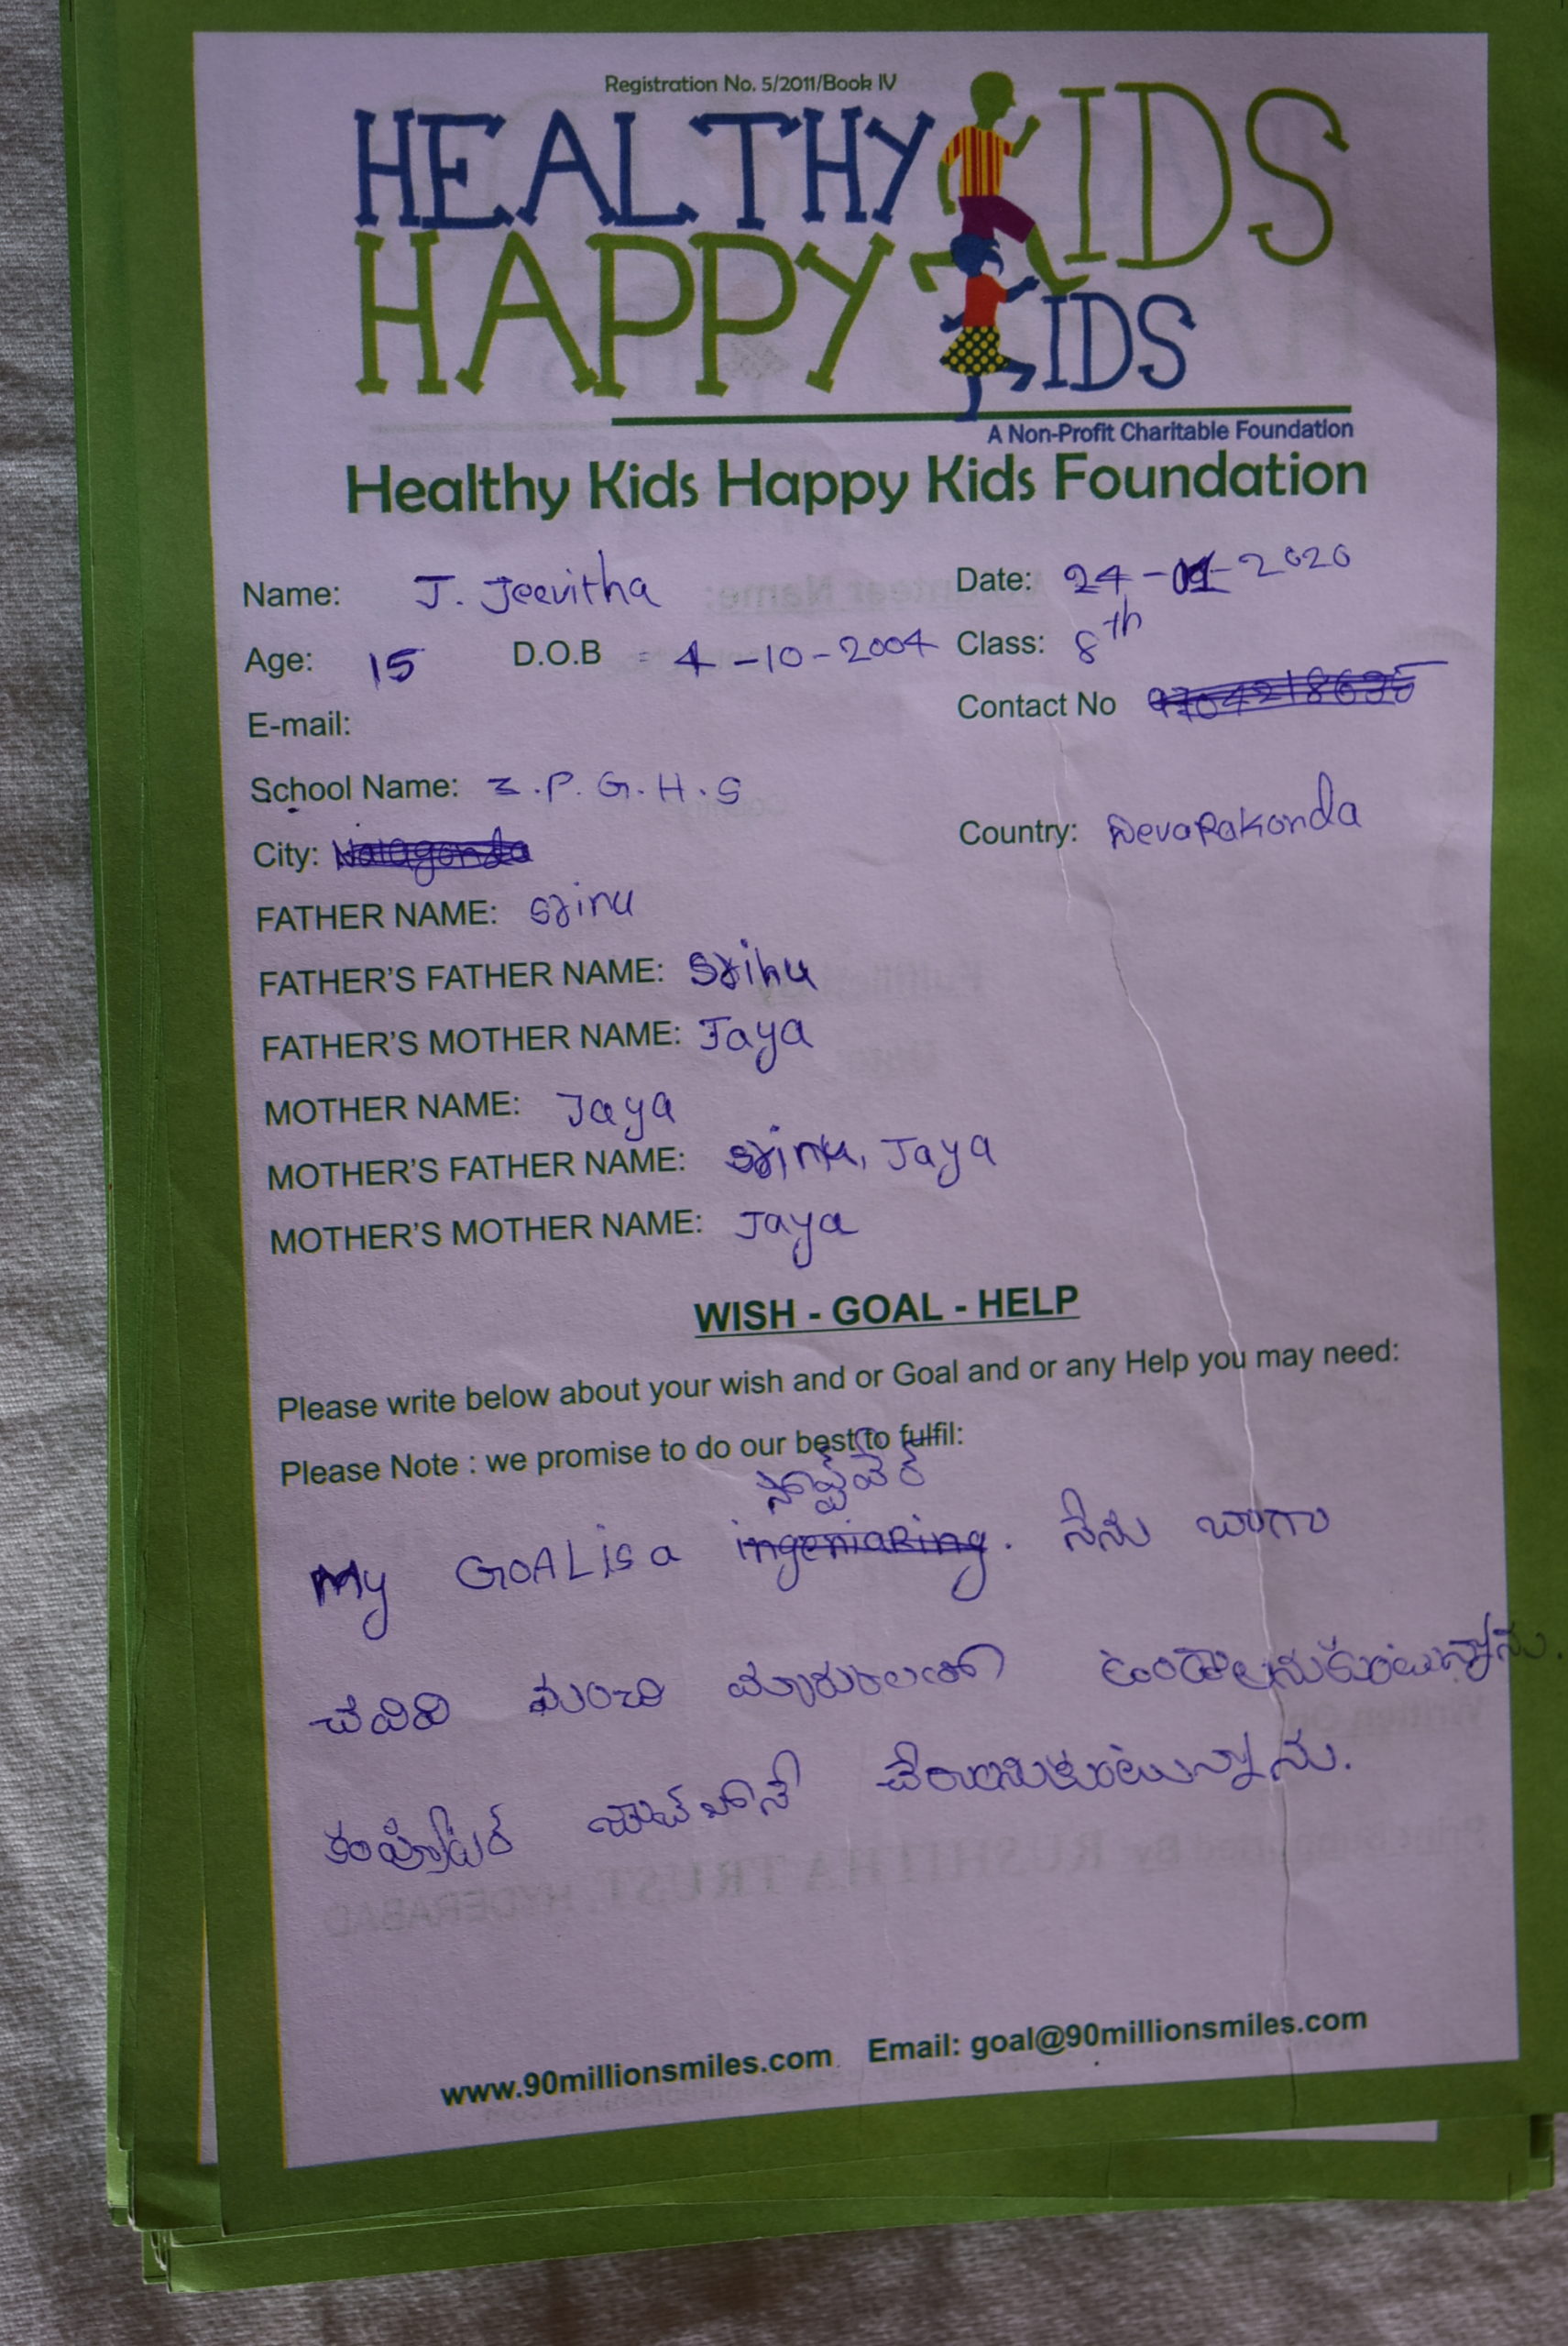 Registration No. 5/2011/Book IV
HEALTHY KIDS
HAPPY KIDS
A Non-Profit Charitable Foundation
Healthy Kids Happy Kids Foundation
Name: J. Jeevitha Date: 24-01-2020
Age: 15 D.O.B = 4-10-2004 Class: 8th
E-mail: Contact No
School Name: Z.P.G.H.S
City: Nalagonda Country: Devarakonda
FATHER NAME: Srinu
FATHER'S FATHER NAME: Srinu
FATHER'S MOTHER NAME: Jaya
MOTHER NAME: Jaya
MOTHER'S FATHER NAME: Srinu, Jaya
MOTHER'S MOTHER NAME: Jaya
WISH - GOAL - HELP
Please write below about your wish and or Goal and or any Help you may need:
Please Note : we promise to do our best to fulfil:
సాఫ్ట్‌వేర్
My GOAL is a ingeniaring. నేను బాగా
చదివి మంచి మార్కులతో ఉండాలనుకుంటున్నాను.
కంప్యూటర్ జాబ్ చేయాలనుకుంటున్నాను.
www.90millionsmiles.com Email: goal@90millionsmiles.com